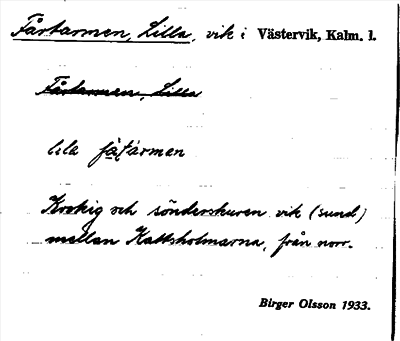 Fårtarmen, Lilla, vik i Västervik, Kalm. l.
Fårtarmen, Lilla
lila få̢ţarmen
Krokig och sönderskuren vik (sund)
mellan Kattsholmarna, från norr.
Birger Olsson 1933.